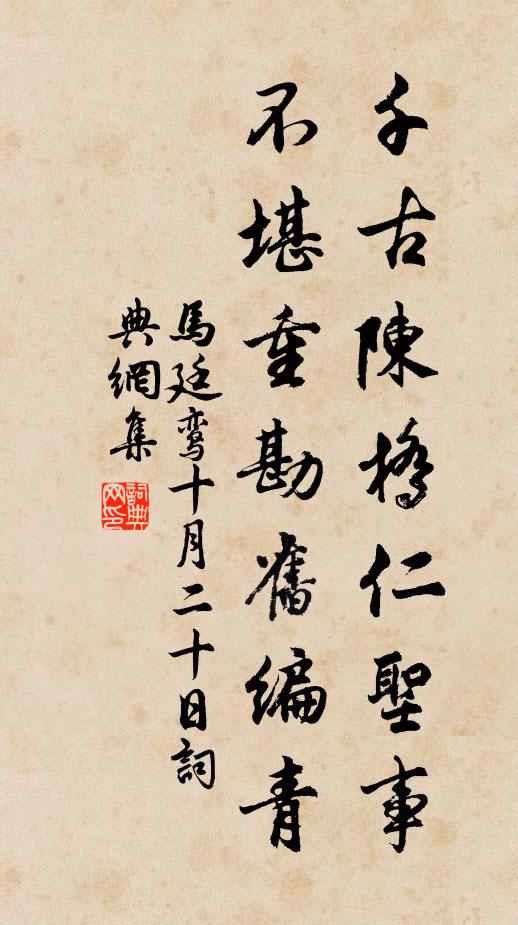 千古陳橋仁聖事
不堪重勘舊編青
馬廷鸞十月二十日詞
典網集
詞典网印